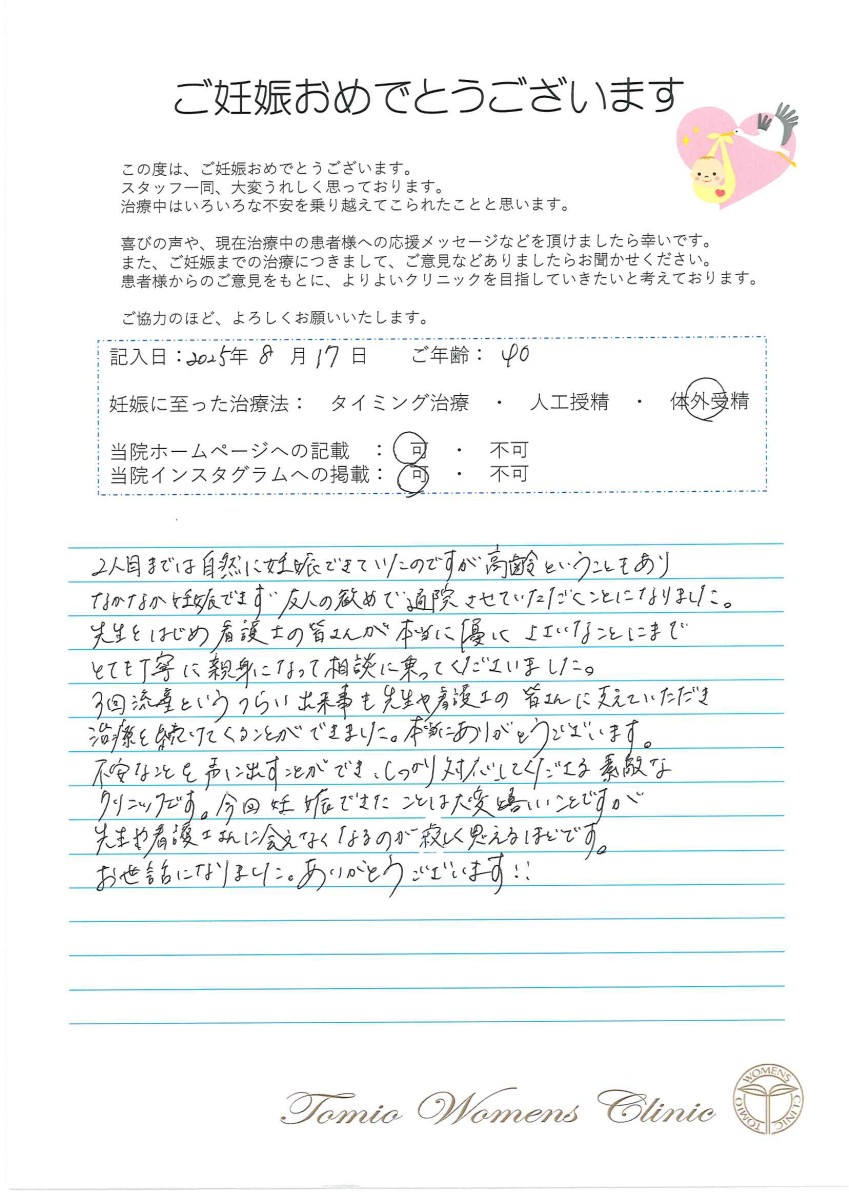 ご妊娠おめでとうございます
この度は、ご妊娠おめでとうございます。
スタッフ一同、大変うれしく思っております。
治療中はいろいろな不安を乗り越えてこられたことと思います。
喜びの声や、現在治療中の患者様への応援メッセージなどを頂けましたら幸いです。
また、ご妊娠までの治療につきまして、ご意見などありましたらお聞かせください。
患者様からのご意見をもとに、よりよいクリニックを目指していきたいと考えております。
ご協力のほど、よろしくお願いいたします。
記入日：2025年 8 月 17 日 ご年齢： 40
妊娠に至った治療法： タイミング治療 ・ 人工授精 ・ 体外受精
当院ホームページへの記載 ： 可 ・ 不可
当院インスタグラムへの掲載： 可 ・ 不可
2人目までは自然に妊娠できていたのですが高齢ということもあり
なかなか妊娠できず友人の勧めで通院させていただくことになりました。
先生をはじめ看護士の皆さんが本当に優しく ささいなことにまで
とても丁寧に親身になって相談に乗ってくださいました。
3回流産というつらい出来事も先生や看護士の皆さんに支えていただき
治療を続けてくることができました。本当にありがとうございます。
不安なことを声に出すことができ、しっかり対応してくださる素敵な
クリニックです。今回妊娠できたことは大変嬉しいことですが
先生や看護士さんに会えなくなるのが寂しく思えるほどです。
お世話になりました。ありがとうございます!!
Tomio Womens Clinic
WOMENS CLINIC TOMIO